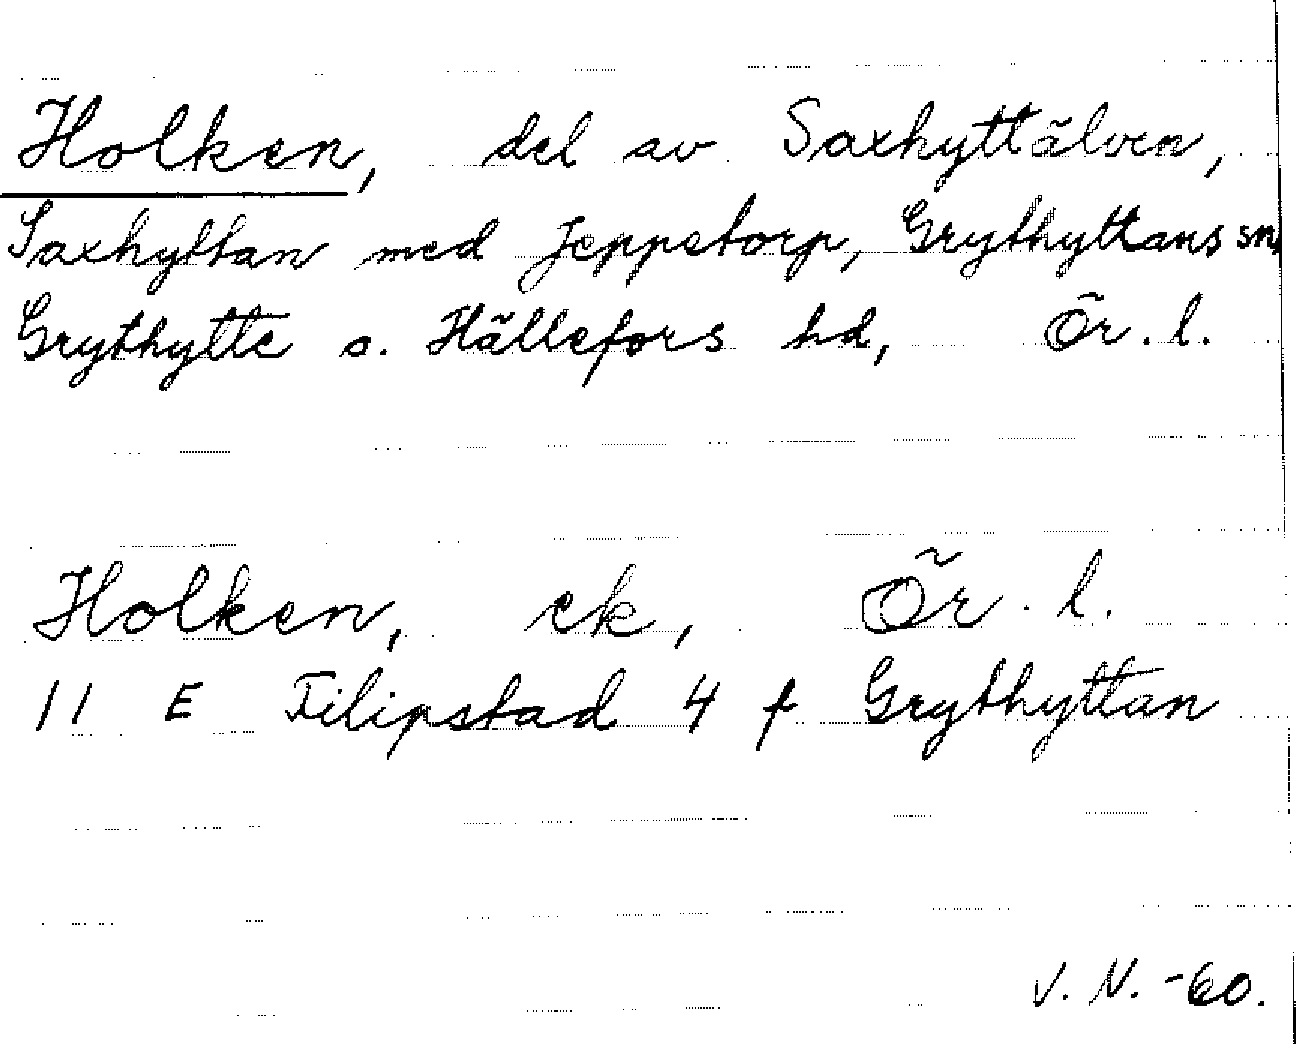 Holken, del av Saxhyttälven,
Saxhyttan med Jeppetorp, Grythyttans sn,
Grythytte o. Hällefors hd, Ör. l.
Holken, ek, Ör. l.
11 E Filipstad 4 f Grythyttan
V. N. -60.